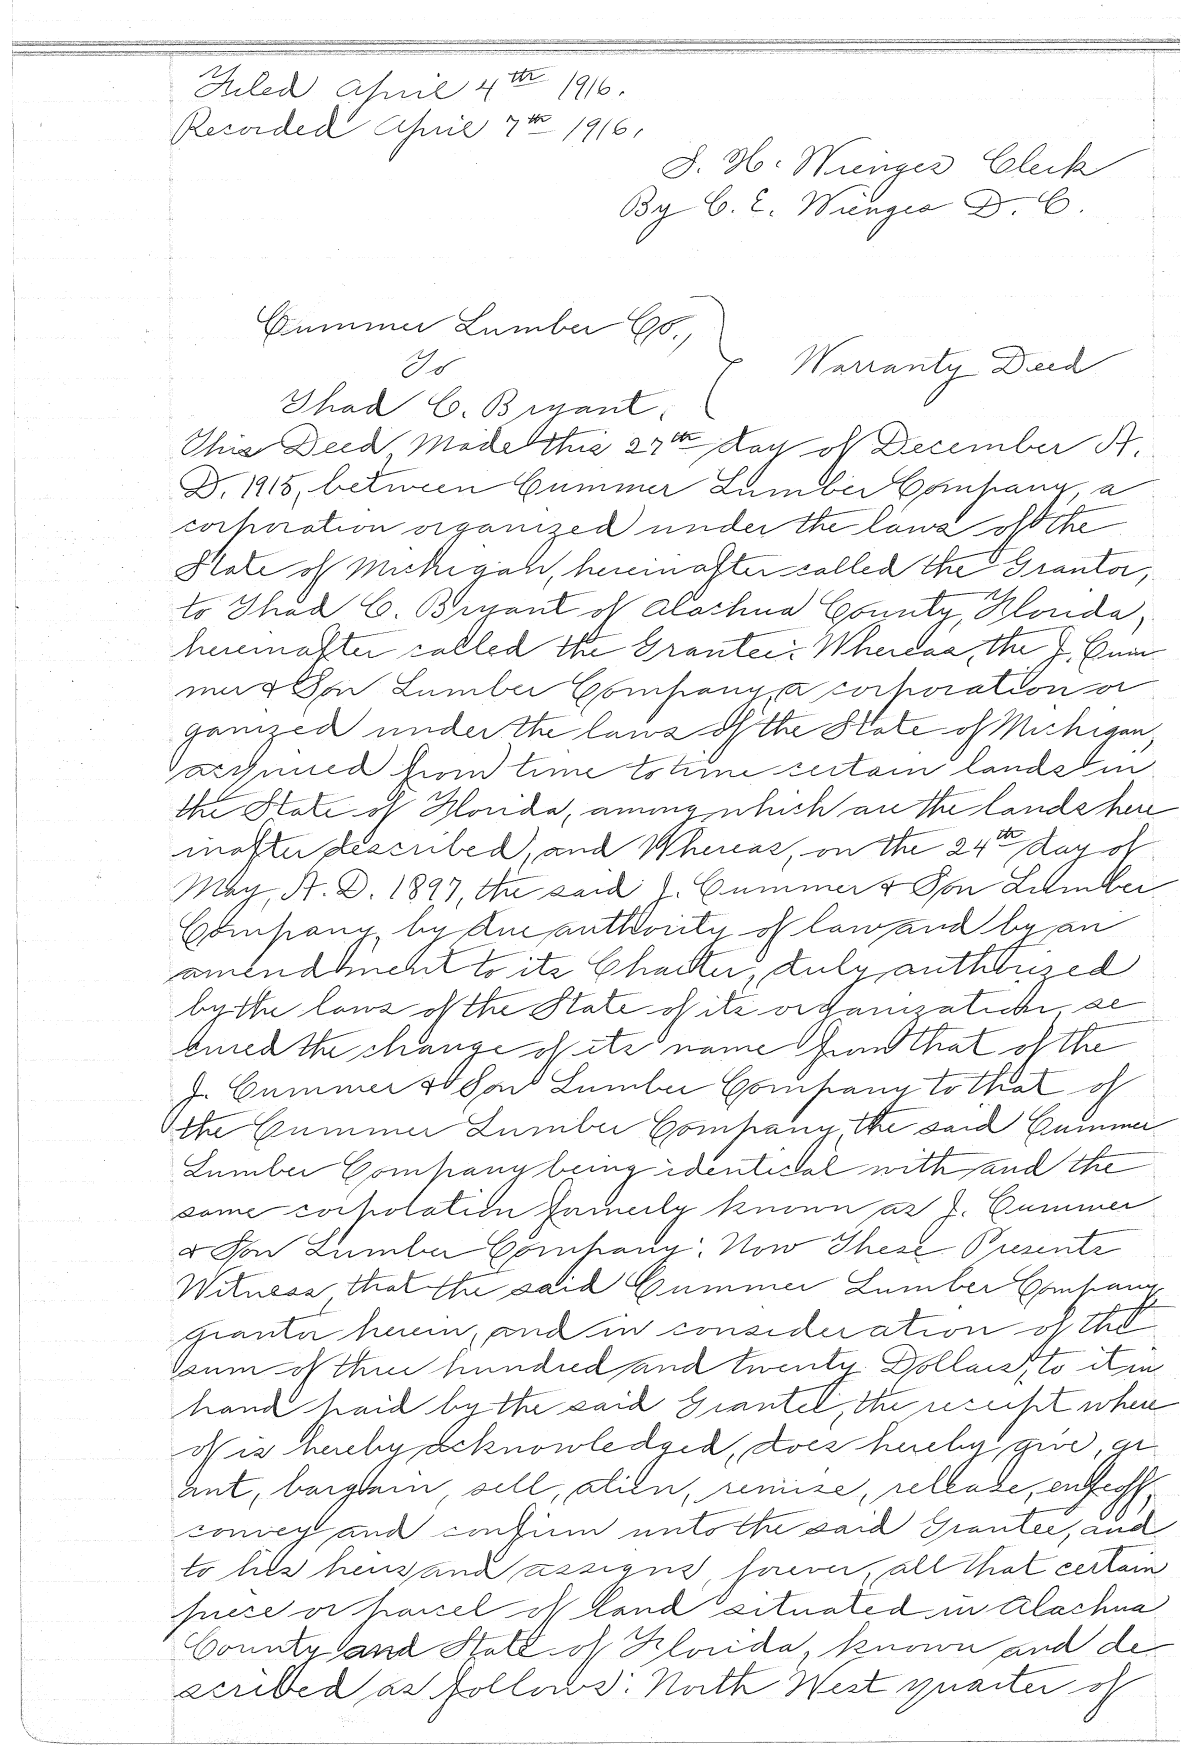 Filed April 4th 1916.
Recorded April 7th 1916.
S. H. Wienges Clerk
By C. E. Wienges D. C.
Cummer Lumber Co.,
To
Warranty Deed
Thad C. Bryant.
This Deed, Made this 27th day of December A.
D. 1915, between Cummer Lumber Company, a
corporation organized under the laws of the
State of Michigan, hereinafter called the Grantor,
to Thad C. Bryant of Alachua County, Florida,
hereinafter called the Grantee: Whereas, the J. Cum
mer & Son Lumber Company, a corporation or
ganized under the laws of the State of Michigan,
acquired from time to time certain lands in
the State of Florida, among which are the lands here
inafter described, and Whereas, on the 24th day of
May, A. D. 1897, the said J. Cummer & Son Lumber
Company, by due authority of law and by an
amendment to its Charter, duly authorized
by the laws of the State of its organization, se
cured the change of its name from that of the
J. Cummer & Son Lumber Company to that of
the Cummer Lumber Company, the said Cummer
Lumber Company being identical with and the
same corporation formerly known as J. Cummer
& Son Lumber Company: Now These Presents
Witness, that the said Cummer Lumber Company,
grantor herein, and in consideration of the
sum of three hundred and twenty Dollars, to it in
hand paid by the said Grantee, the receipt where
of is hereby acknowledged, does hereby give, gr
ant, bargain, sell, alien, remise, release, enfeoff,
convey and confirm unto the said Grantee, and
to his heirs and assigns, forever, all that certain
piece or parcel of land situated in Alachua
County and State of Florida, known and de
scribed as follows: North West quarter of